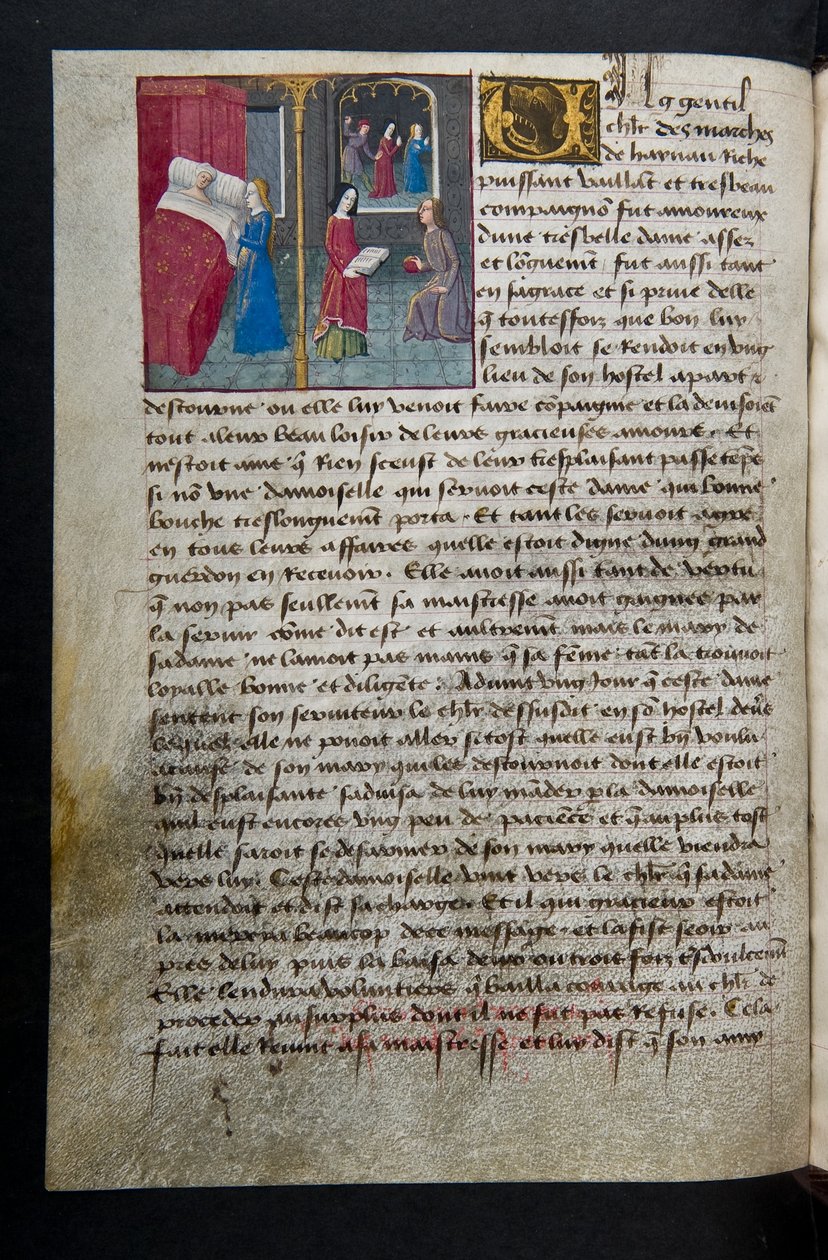 Ug gentil
chlr des marches
de haynau Riche
puissant vaillat et tresbeau
compaigno fut amoureux
dune tresbelle dame assez
et loguemt fut aussi tant
en sa grace et si prive delle
q toutesfoiz que bon luy
sembloit se Rendoit en ung
lieu de son hostel apart
destourne ou elle luy venoit faire copaignie et la devisoiet
tout a leur beau loisir de leurs gracieuses amours Et
nestoit ame q Rien sceust de leur tresplaisant passe teps
si no une damoiselle qui servoit ceste dame qui bonne
bouche treslonguemt porta Et tant les servoit a gre
en tous leurs affaires quelle estoit digne dung grand
guerdon en Recevoir. Elle avoit aussi tant de vertu
q non pas seullemt sa maistresse avoit gaignee par
la servir come dit est et aultremt mais le mary de
sa dame ne lamoit pas mains q sa feme tat la trouvoit
loyalle bonne et diligete. Advint ung Jour q ceste dame
sentent son serviteur le chlr dessusdit en so hostel devs
lequel elle ne pouoit aller si tost quelle eust by voulu
a cause de son mary qui les destournoit dont elle estoit
by desplaisante sadvisa de luy mader p la damoiselle
quil eust encores ung peu de pacience et q au plus tost
quelle saroit se desarmer de son mary quelle viendra
vers luy. Ceste damoiselle vint vers le chlr q sa dame
attendoit et dist sa charge. Et il qui gracieux estoit
la mercya beaucop de ce message et la fist seoir au
pres de luy puis la baisa deux ou trois foiz ts doulcemt
Elle lendura voluntiers q bailla courage au chlr de
proceder au surplus dont il ne fut pas Refuse. Cela
fait elle Revint a sa maistresse et luy dist q son amy